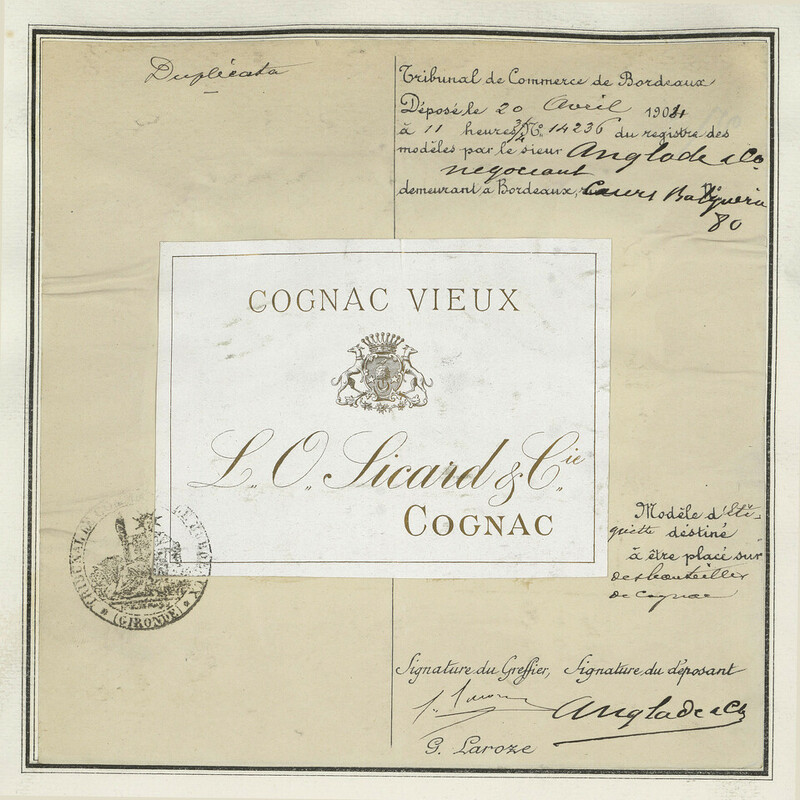 Duplicata
Tribunal de Commerce de Bordeaux
Déposé le 20 Avril 1901
à 11 heures 3/4 No. 14236 du registre des
modèles par le sieur Anglade & Co.
négociant
demeurant à Bordeaux, Cours Balguerie
80
COGNAC VIEUX
L. O. Sicard & Cie
COGNAC
Modèle d'éti-
quette destiné
à être placé sur
des bouteilles
de cognac
TRIBUNAL DE COMMERCE DE BORDEAUX
(GIRONDE)
Signature du Greffier, Signature du déposant
Anglade & Co
G. Laroze